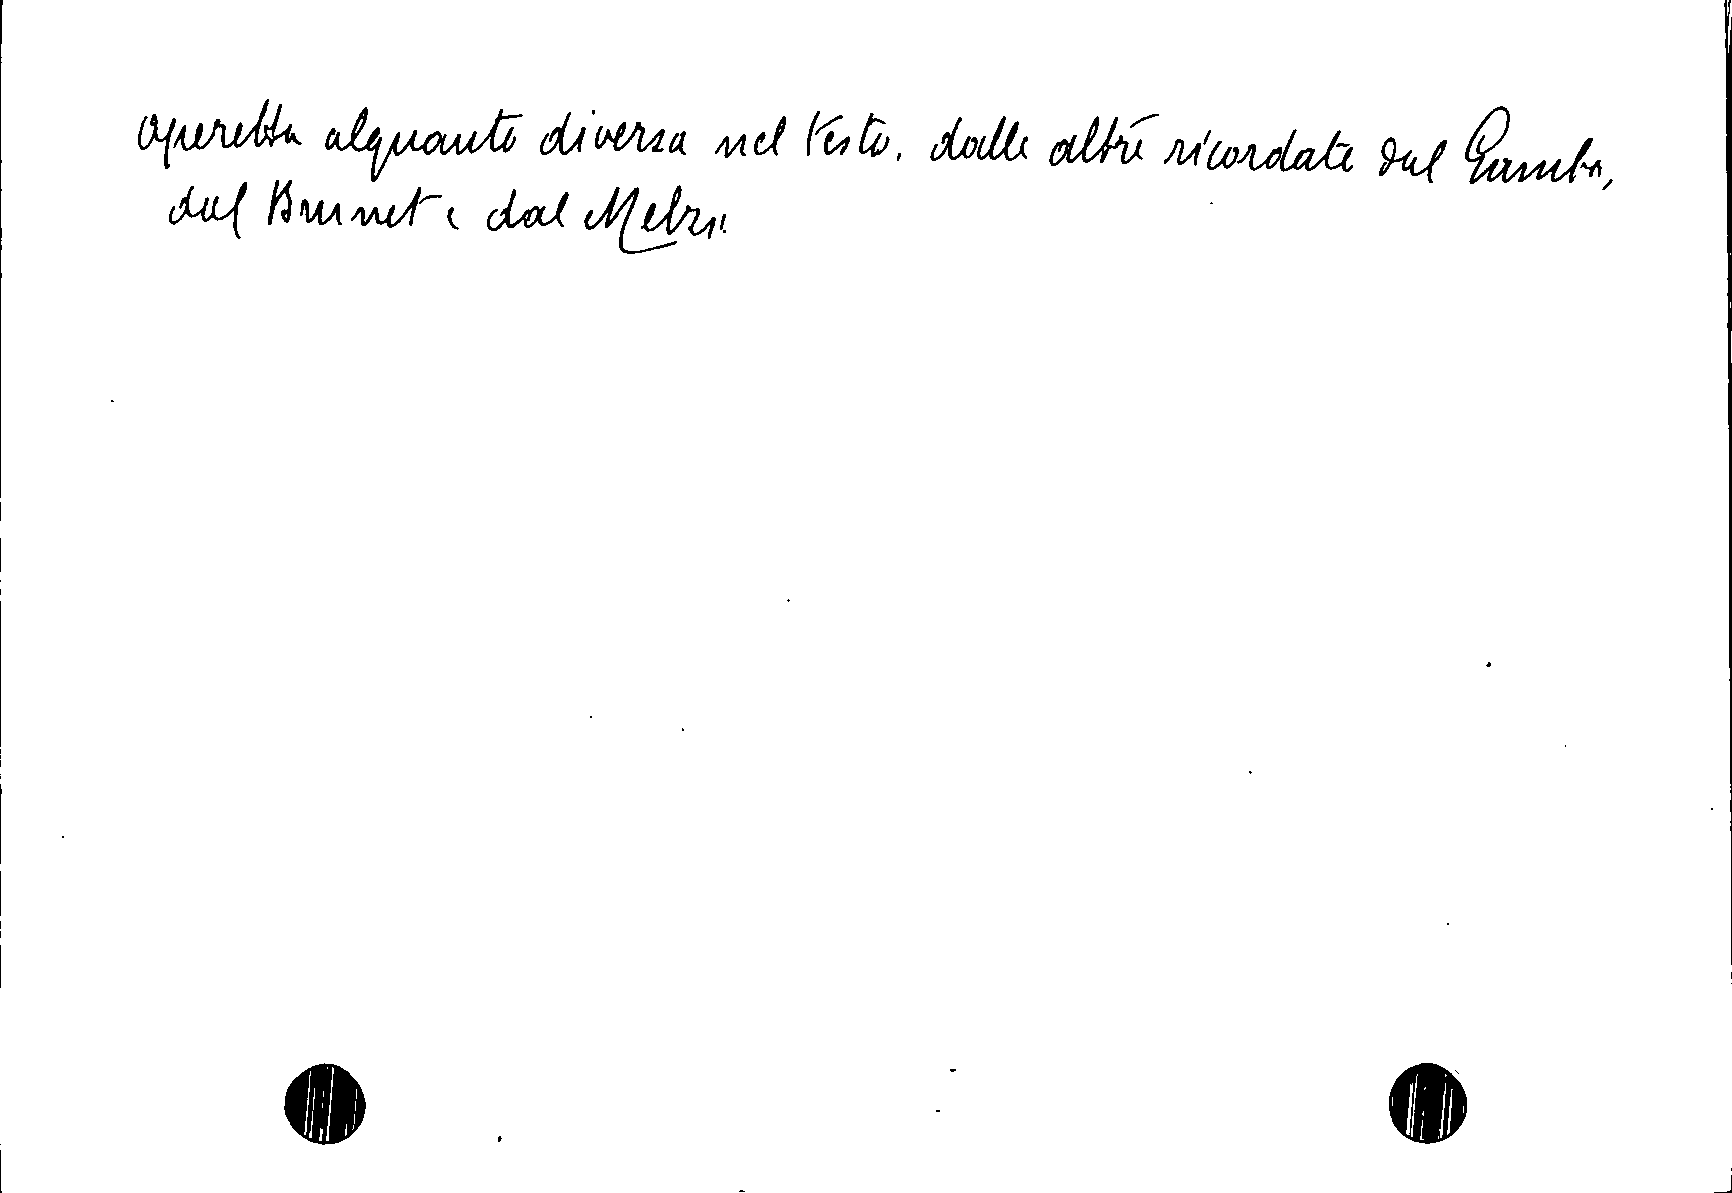 operetta alquanto diversa nel testo, dalle altre ricordate dal Gamba,
dal Brunet e dal Melzi.